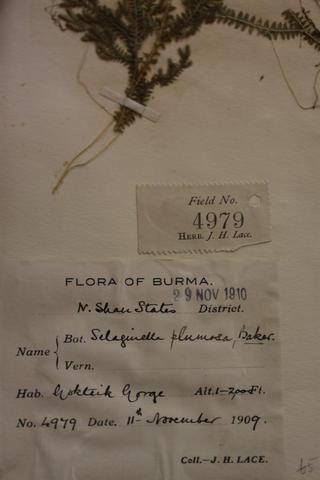 Field No.
4979
Herb. J. H. Lace.
FLORA OF BURMA.
29 NOV 1910
N. Shan States District.
Name { Bot. Selaginella plumosa, Baker.
Vern.
Hab. Gokteik Gorge Alt. 1-2000 Ft.
No. 4979 Date. 11th November 1909.
Coll.—J. H. LACE.